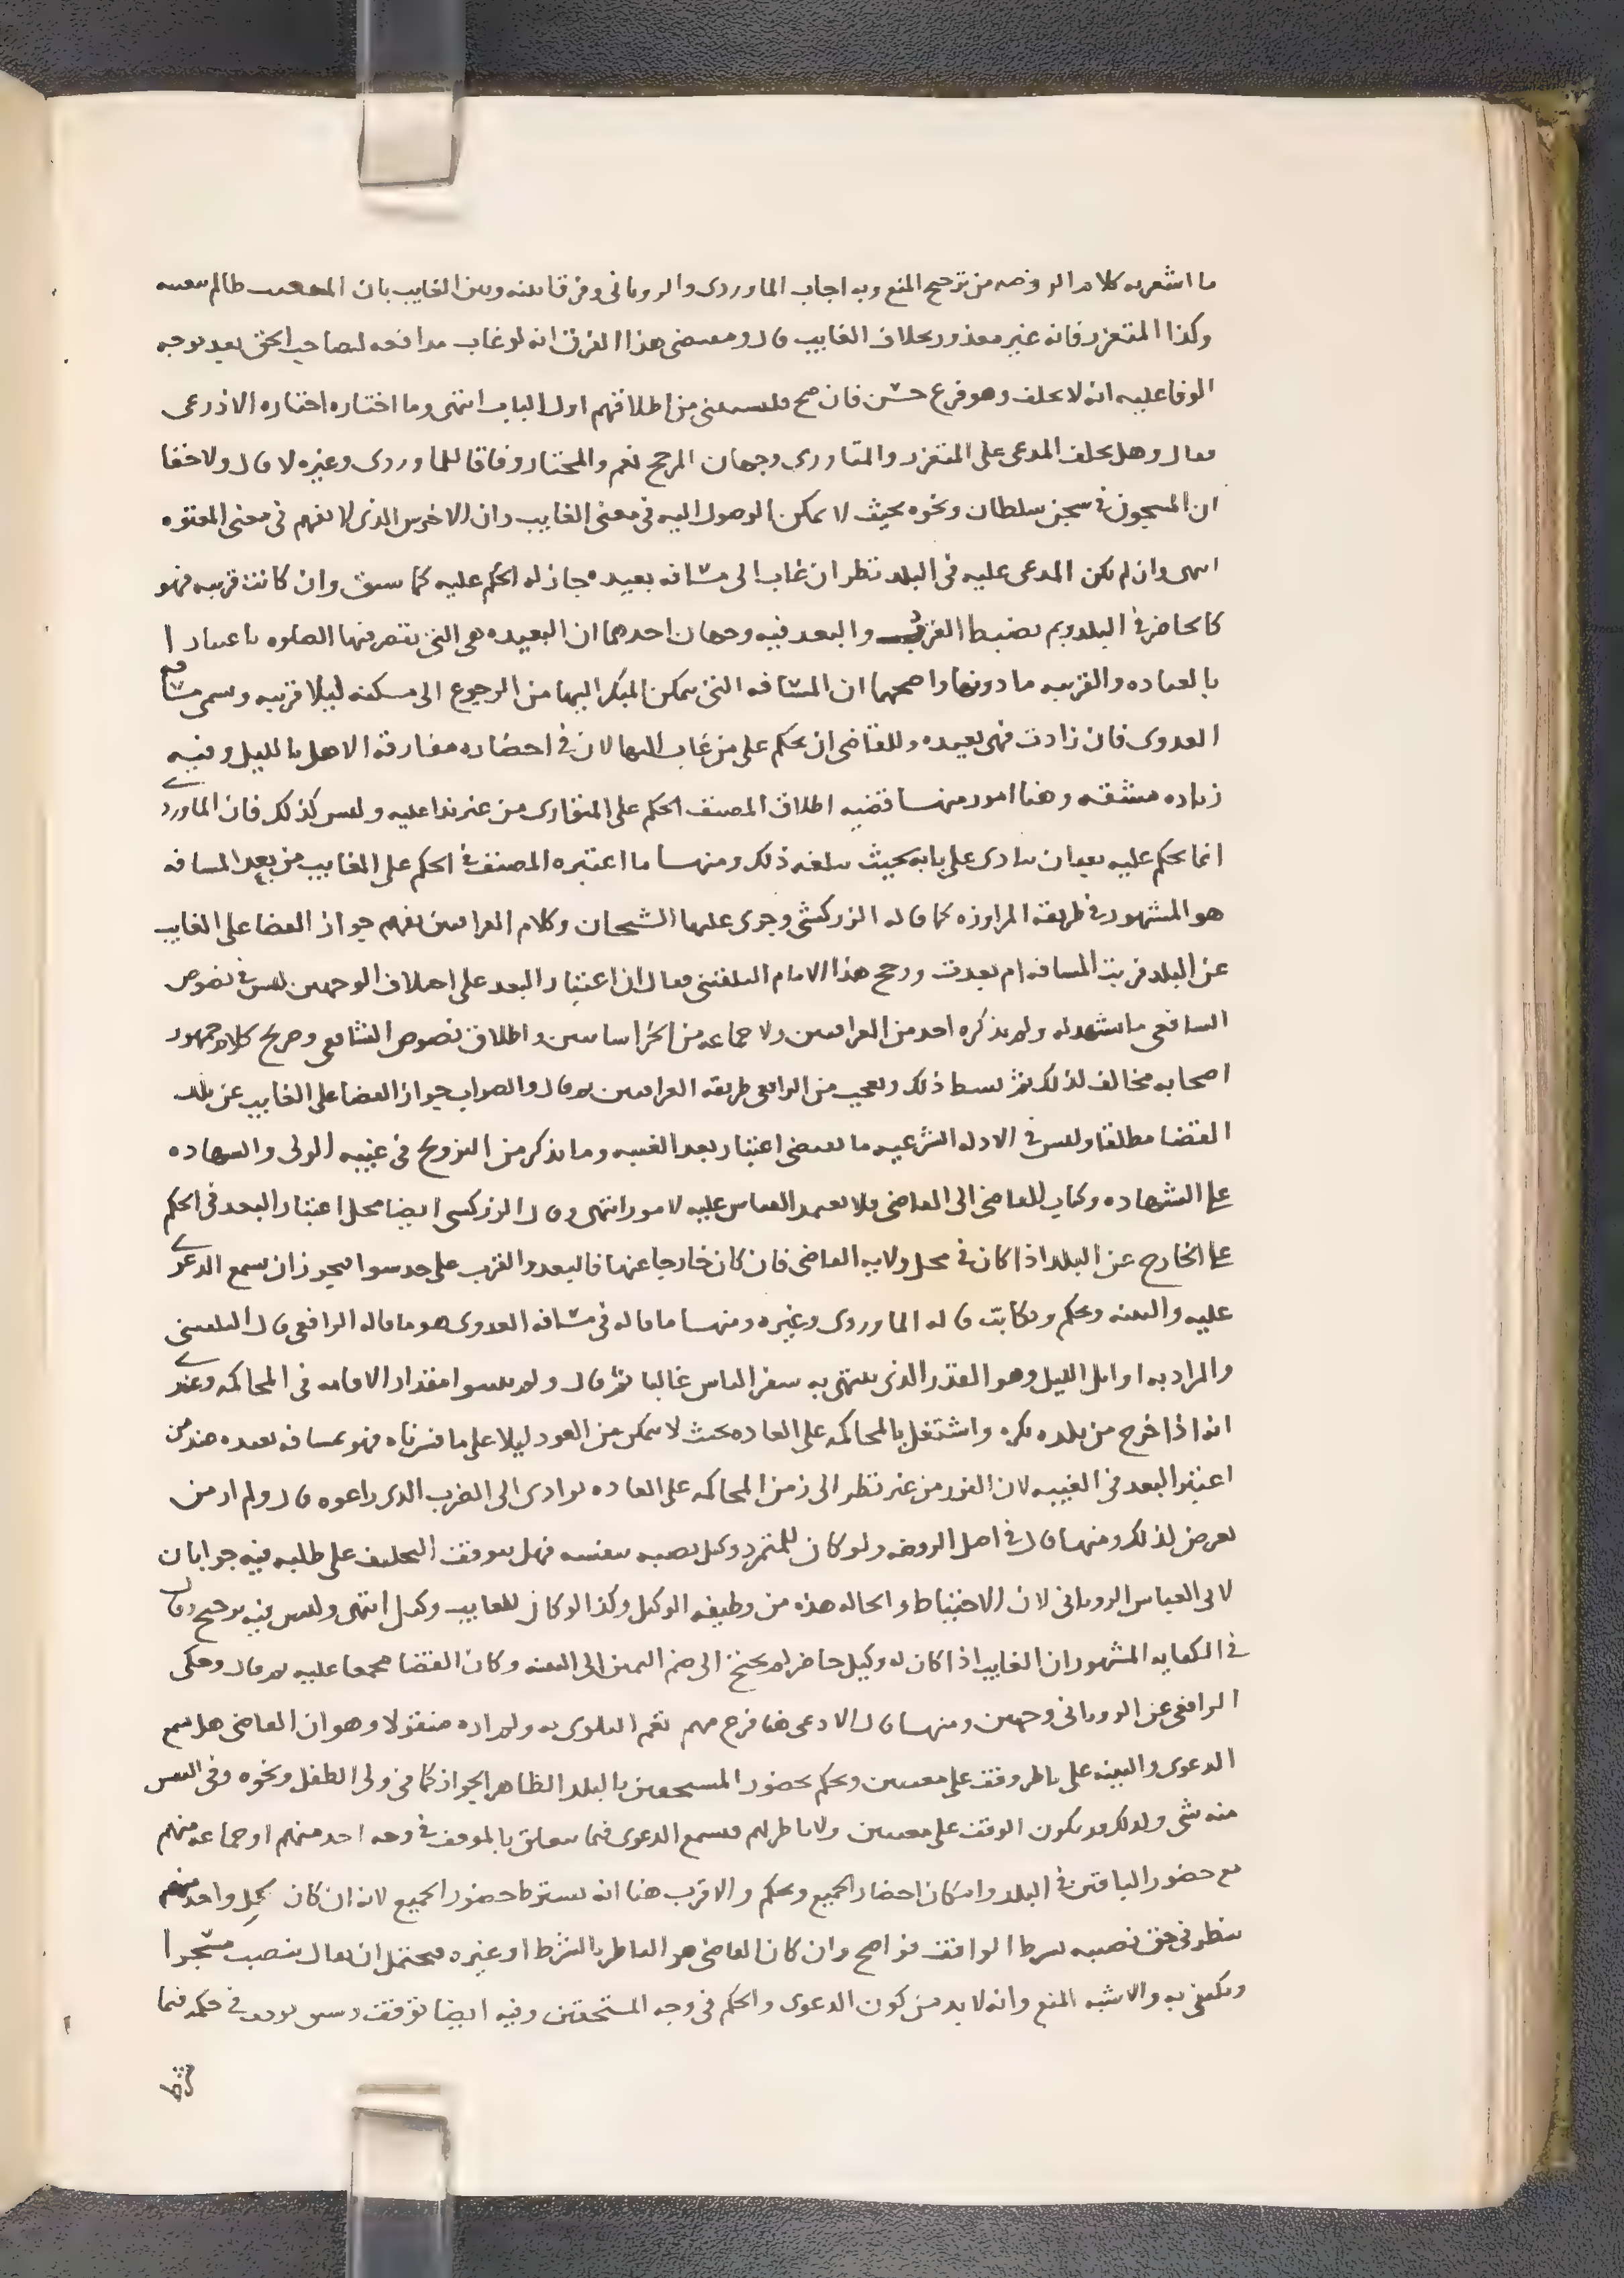 ما اشعر به كلام الروضه من ترجيح المنع وبه اجاب الماوردى والرويانى وفرقا بينه وبين الغايب بان ظالم بتغيبه
وكذا المتعزز فانه غير معذور بخلاف الغايب قال ومقتضى هذا الفرق انه لو غاب مدافعه لصاحب الحق بعد توجه
الوفا عليه انه لا يحلف وهو فرع حسن فان صح فليستثنى من اطلاقهم اول الباب انتهى وما اختاره اختاره الاذرعى
فقال وهل يحلف المدعى على المتعزز والمتوارى وجهان المرجح نعم والمختار وفاقا للماوردى وغيره لا قال ولا خفا
ان المسجون فى سجن سلطان ونحوه بحيث لا يمكن الوصول اليه فى معنى الغايب وان الاخرس الذى لا يفهم فى معنى المعتوه
انتهى وان لم يكن المدعى عليه فى البلد نظر ان غاب الى مسافه بعيده جاز له الحكم عليه كما سبق وان كانت قريبه فهو
كالحاضر فى البلد وبم يضبط القرب والبعد فيه وجهان احدهما ان البعيده هى التى تقصر فيها الصلوه باعتبارا
بالعباده والقريبه ما دونها واصحهما ان المسافه التى يمكن المبكر اليها من الرجوع الى مسكنه ليلا قريبه وسمى مسافه
العدوى فان زادت فهى بعيده وللقاضى ان يحكم على من غاب اليها لان فى احضاره مفارقة الاهل بالليل وفيه
زياده مشقه وهنا امور منها قضيه اطلاق المصنف الحكم على المتوارى من غير ندا عليه وليس كذلك فان الماوردى
انما يحكم عليه بعد ان ينادى على بابه بحيث يبلغه ذلك ومنها ما اعتبره المصنف فى الحكم على الغايب من بعد المسافه
هو المشهور فى طريقة المراوزه كما قاله الزركشى وجرى عليها الشيخان وكلام العراقيين يفهم جواز القضا على الغايب
عن البلد قربت المسافه ام بعدت ورجح هذا الامام البلقينى فقال ان اعتبار البعد على اختلاف الوجهين ليس فى نصوص
الشافعى ما يشهد له ولم يذكره احد من العراقيين ولا جماعه من الخراسانيين واطلاق نصوص الشافعى وصريح كلام جمهور
اصحابه مخالف لذلك ثم بسط ذلك وتعجب من الرافعى طريقه العراقيين ثم قال والصواب جواز القضا على الغايب عن بلد
القضا مطلقا وليس فى الادله الشرعيه ما يقتضى اعتبار بعد الغيبه وما يذكر من التزويج فى غيبه الولى والشهاده
على الشهاده وكتاب القاضى الى القاضى فلا يعتمد القياس عليه لامور انتهى وقال الزركشى ايضا محل اعتبار البعد فى الحكم
على الخارج عن البلد اذا كان فى محل ولايه القاضى فان كان خارجا عنها فالبعد والقرب على حد سوا فيجوز ان يسمع الدعوى
عليه والبينه ويحكم ويكاتب قاله الماوردى وغيره ومنها ما قاله فى مسافه العدوى هو ما قاله الرافعى قال البلقينى
والمراد به اوايل الليل وهو القدر الذى ينتهى به سفر الناس غالبا ثم قال ولم يبينوا مقدار الاقامه فى المحاكمه وعندى
انه اذا خرج من بلده بكره واشتغل بالمحاكمه على العاده بحيث لا يمكن من العود ليلا على ما فسرناه فهو بمسافه بعيده عند من
اعتبر البعد فى الغيبه لان القدر من غير نظر الى زمن المحاكمه على العاده يوادى الى الضرب الذى راعوه قال ولم ار من
تعرض لذلك ومنها قال فى اصل الروضه ولو كان للمتمرد وكيل نصبه بنفسه فهل يتوقف التحليف على طلبه فيه جوابان
لابى العباس الرويانى لان الاحتياط والحاله هذه من وظيفه الوكيل وكذا لو كان للغايب وكيل انتهى وليس فيه ترجيح وقال
فى الكفايه المشهور ان الغايب اذا كان له وكيل حاضر لم يحتج الى ضم اليمين الى البينه وكان القضا مجمعا عليه ثم قال وحكى
الرافعى عن الرويانى وجهين ومنها قال الاذرعى هنا فرع مهم تعم البلوى به ولم اره منقولا وهو ان القاضى هل يسمع
الدعوى والبينه على ناظر وقف على معينين ويحكم بحضور المستحقين بالبلد الظاهر الجواز كما فى ولى الطفل ونحوه وفى النفس
منه شى وكذلك قد يكون الوقف على معينين ولا ناظر لهم فيسمع الدعوى فيما يتعلق بالوقف فى وجه احد منهم او جماعه منهم
مع حضور الباقين فى البلد وامكان احضار الجميع ويحكم والاقرب هنا انه يشترط حضور الجميع لانه ان كان كل واحد منهم
ينظر فى حق نصيبه بشرط الواقف فواضح وان كان القاضى هو الناظر بالشرط او غيره فيحتمل ان يقال ينصب مسخرا
ويكفى به والاشبه المنع وانه لا بد من كون الدعوى والحكم فى وجه المستحقين وفيه ايضا توقف فى حكمه فيما